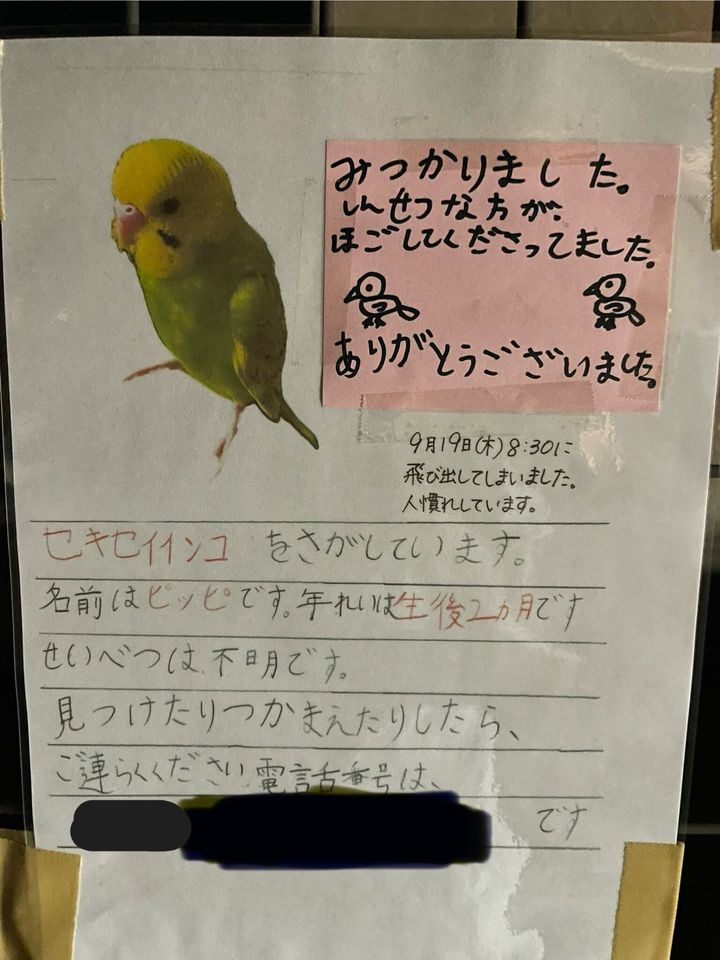 みつかりました。
しんせつな方が、
ほごしてくださってました。
ありがとうございました。
9月19日(木)8:30に
飛び出してしまいました。
人慣れしています。
セキセイインコ をさがしています。
名前はピッピです。年れいは生後2ヵ月です
せいべつは、不明です。
見つけたりつかまえたりしたら、
ご連らくください。電話番号は、
です